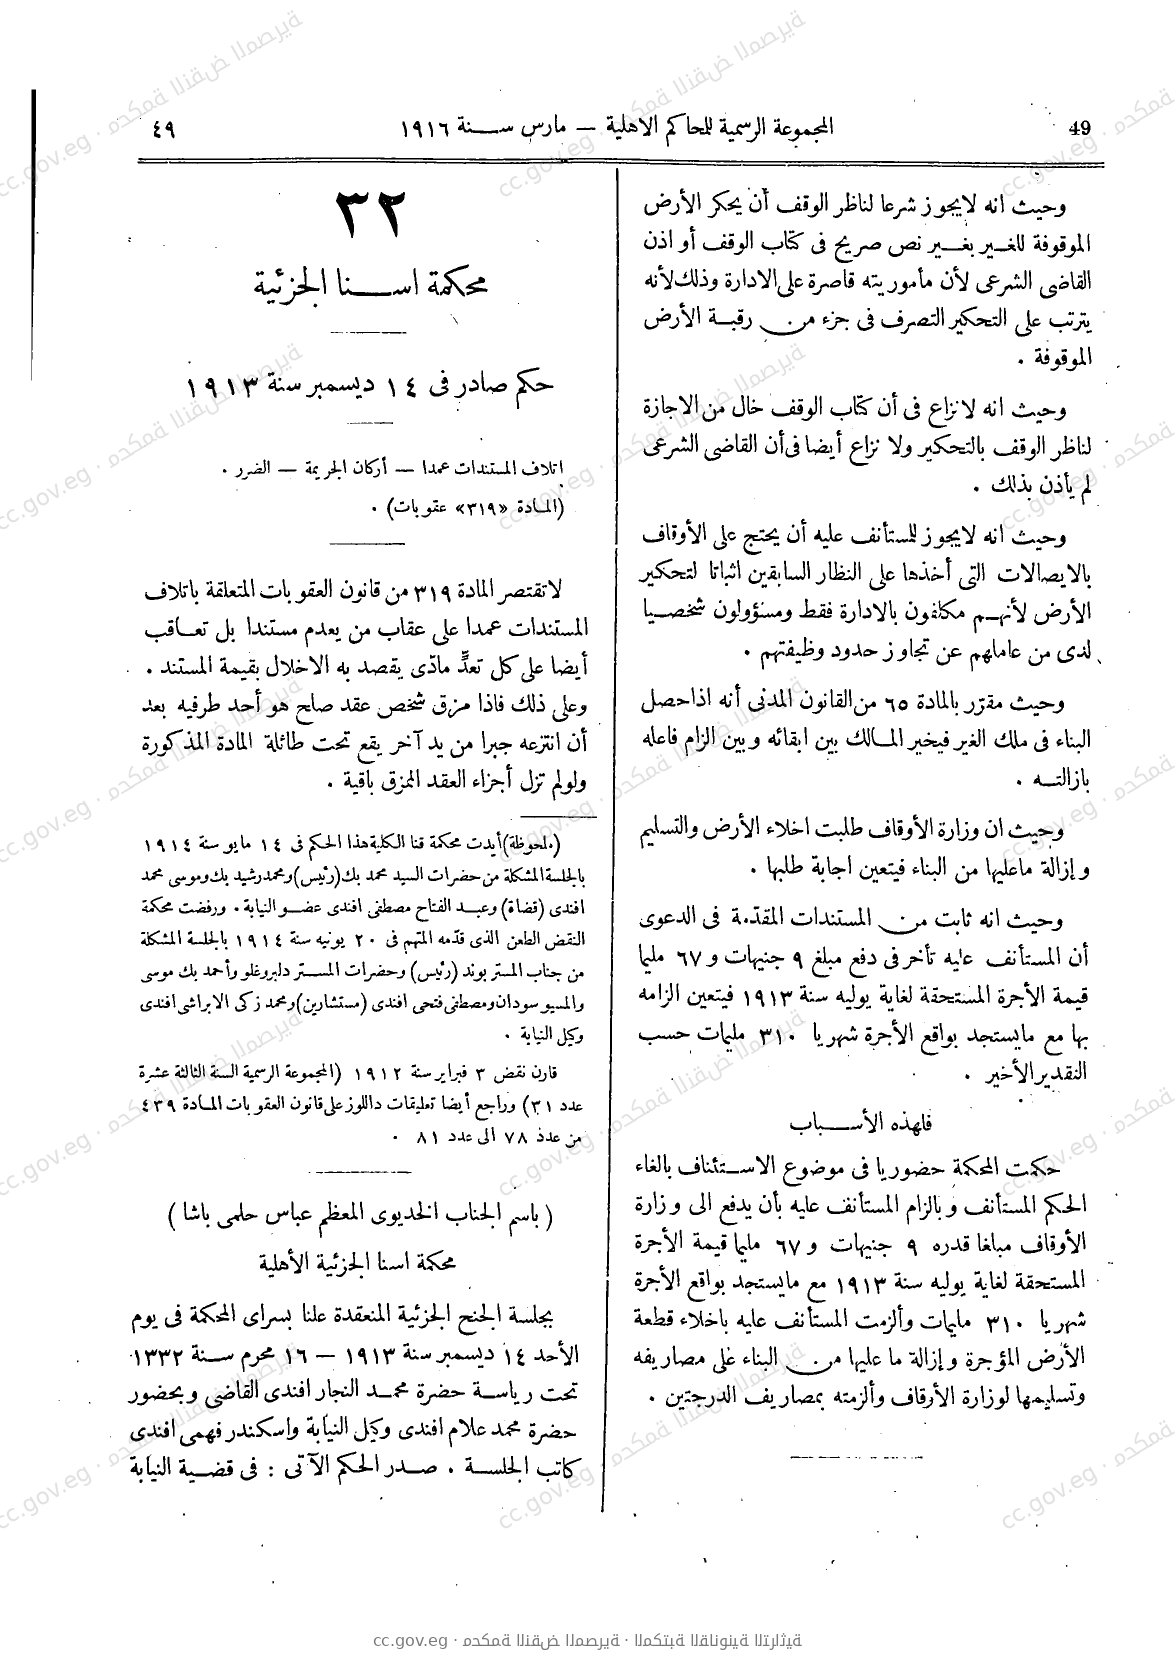 49
المجموعة الرسمية للمحاكم الاهلية — مارس سنة ١٩١٦
٤٩
وحيث انه لايجوز شرعا لناظر الوقف أن يحكر الأرض
الموقوفة للغير بغير نص صريح فى كتاب الوقف أو اذن
القاضى الشرعى لأن مأموريته قاصرة على الادارة وذلك لأنه
يترتب على التحكير التصرف فى جزء من رقبة الأرض
الموقوفة .
وحيث انه لانزاع فى أن كتاب الوقف خال من الاجازة
لناظر الوقف بالتحكير ولا نزاع أيضا فى أن القاضى الشرعى
لم يأذن بذلك .
وحيث انه لايجوز للمستأنف عليه أن يحتج على الأوقاف
بالايصالات التى أخذها على النظار السابقين اثباتا لتحكير
الأرض لأنهم مكلفون بالادارة فقط ومسؤولون شخصيا
لدى من عاملهم عن تجاوز حدود وظيفتهم .
وحيث مقرّر بالمادة ٦٥ من القانون المدنى أنه اذا حصل
البناء فى ملك الغير فيخير المالك بين ابقائه وبين الزام فاعله
بازالته .
وحيث ان وزارة الأوقاف طلبت اخلاء الأرض والتسليم
وإزالة ماعليها من البناء فيتعين اجابة طلبها .
وحيث انه ثابت من المستندات المقدّمة فى الدعوى
أن المستأنف عليه تأخر فى دفع مبلغ ٩ جنيهات و ٦٧ مليما
قيمة الأجرة المستحقة لغاية يوليه سنة ١٩١٣ فيتعين الزامه
بها مع مايستجد بواقع الأجرة شهريا ٣١٠ مليمات حسب
التقدير الأخير .
فلهذه الأسباب
حكمت المحكمة حضوريا فى موضوع الاستئناف بالغاء
الحكم المستأنف وبالزام المستأنف عليه بأن يدفع الى وزارة
الأوقاف مبلغا قدره ٩ جنيهات و ٦٧ مليما قيمة الأجرة
المستحقة لغاية يوليه سنة ١٩١٣ مع مايستجد بواقع الأجرة
شهريا ٣١٠ مليمات وألزمت المستأنف عليه باخلاء قطعة
الأرض المؤجرة وإزالة ما عليها من البناء على مصاريفه
وتسليمها لوزارة الأوقاف وألزمته بمصاريف الدرجتين .
٣٢
محكمة اسنا الجزئية
حكم صادر فى ١٤ ديسمبر سنة ١٩١٣
اتلاف المستندات عمدا — أركان الجريمة — الضرر .
(المادة «٣١٩» عقوبات) .
لاتقتصر المادة ٣١٩ من قانون العقوبات المتعلقة باتلاف
المستندات عمدا على عقاب من يعدم مستندا بل تعاقب
أيضا على كل تعدٍّ مادّى يقصد به الاخلال بقيمة المستند .
وعلى ذلك فاذا مزق شخص عقد صلح هو أحد طرفيه بعد
أن انتزعه جبرا من يد آخر يقع تحت طائلة المادة المذكورة
ولو لم تزل أجزاء العقد الممزق باقية .
(ملحوظة) أيدت محكمة قنا الكلية هذا الحكم فى ١٤ مايو سنة ١٩١٤
بالجلسة المشكلة من حضرات السيد محمد بك (رئيس) ومحمد رشيد بك وموسى محمد
افندى (قضاة) وعبد الفتاح مصطفى افندى عضو النيابة . ورفضت محكمة
النقض الطعن الذى قدّمه المتهم فى ٢٠ يونيه سنة ١٩١٤ بالجلسة المشكلة
من جناب المستر بوند (رئيس) وحضرات المستر دلبروغلو وأحمد بك موسى
والمسيو سودان ومصطفى فتحى افندى (مستشارين) ومحمد زكى الابراشى افندى
وكيل النيابة .
قارن نقض ٣ فبراير سنة ١٩١٢ (المجموعة الرسمية السنة الثالثة عشرة
عدد ٣١) وراجع أيضا تعليقات داللوز على قانون العقوبات المادة ٤٣٩
من عدد ٧٨ الى عدد ٨١ .
(باسم الجناب الخديوى المعظم عباس حلمى باشا)
محكمة اسنا الجزئية الأهلية
بجلسة الجنح الجزئية المنعقدة علنا بسراى المحكمة فى يوم
الأحد ١٤ ديسمبر سنة ١٩١٣ — ١٦ محرم سنة ١٣٣٢
تحت رياسة حضرة محمد النجار افندى القاضى وبحضور
حضرة محمد علام افندى وكيل النيابة واسكندر فهمى افندى
كاتب الجلسة . صدر الحكم الآتى : فى قضية النيابة
cc.gov.eg · محكمة النقض المصرية · المكتبة القانونية التراثية